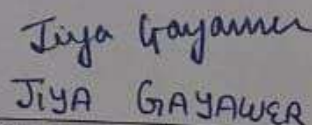 Jiya Gayawer
JiYA GAYAWER